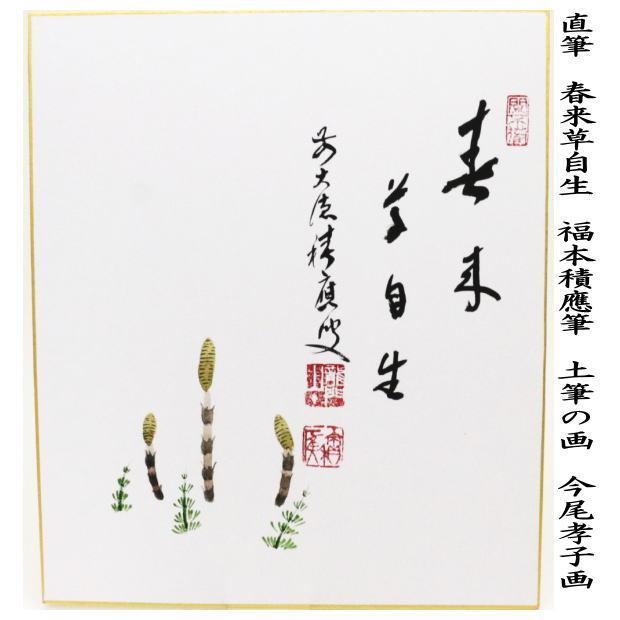 直筆 春来草自生 福本積應筆 土筆の画 今尾孝子画
春来
草自生
前大徳積應叟